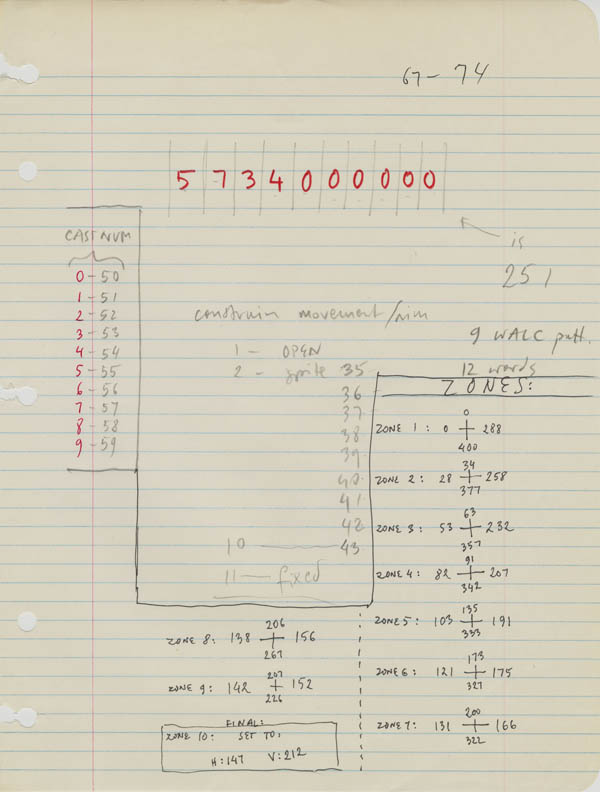 67-74
5 7 3 4 0 0 0 0 0 0
is
251
CAST NUM
0-50
1-51
2-52
3-53
4-54
5-55
6-56
7-57
8-58
9-59
constrain movement/aim
1 - OPEN
2 - sprite 35
36
37
38
39
40
41
42
10 43
11 — fixed
9 WALC patt.
12 words
ZONES:
0
ZONE 1: 0 288
400
34
ZONE 2: 28 258
377
63
ZONE 3: 53 232
357
91
ZONE 4: 82 207
342
135
ZONE 5: 103 191
333
173
ZONE 6: 121 175
327
200
ZONE 7: 131 166
322
206
ZONE 8: 138 156
267
207
ZONE 9: 142 152
226
FINAL:
ZONE 10: SET TO:
H:147 V:212